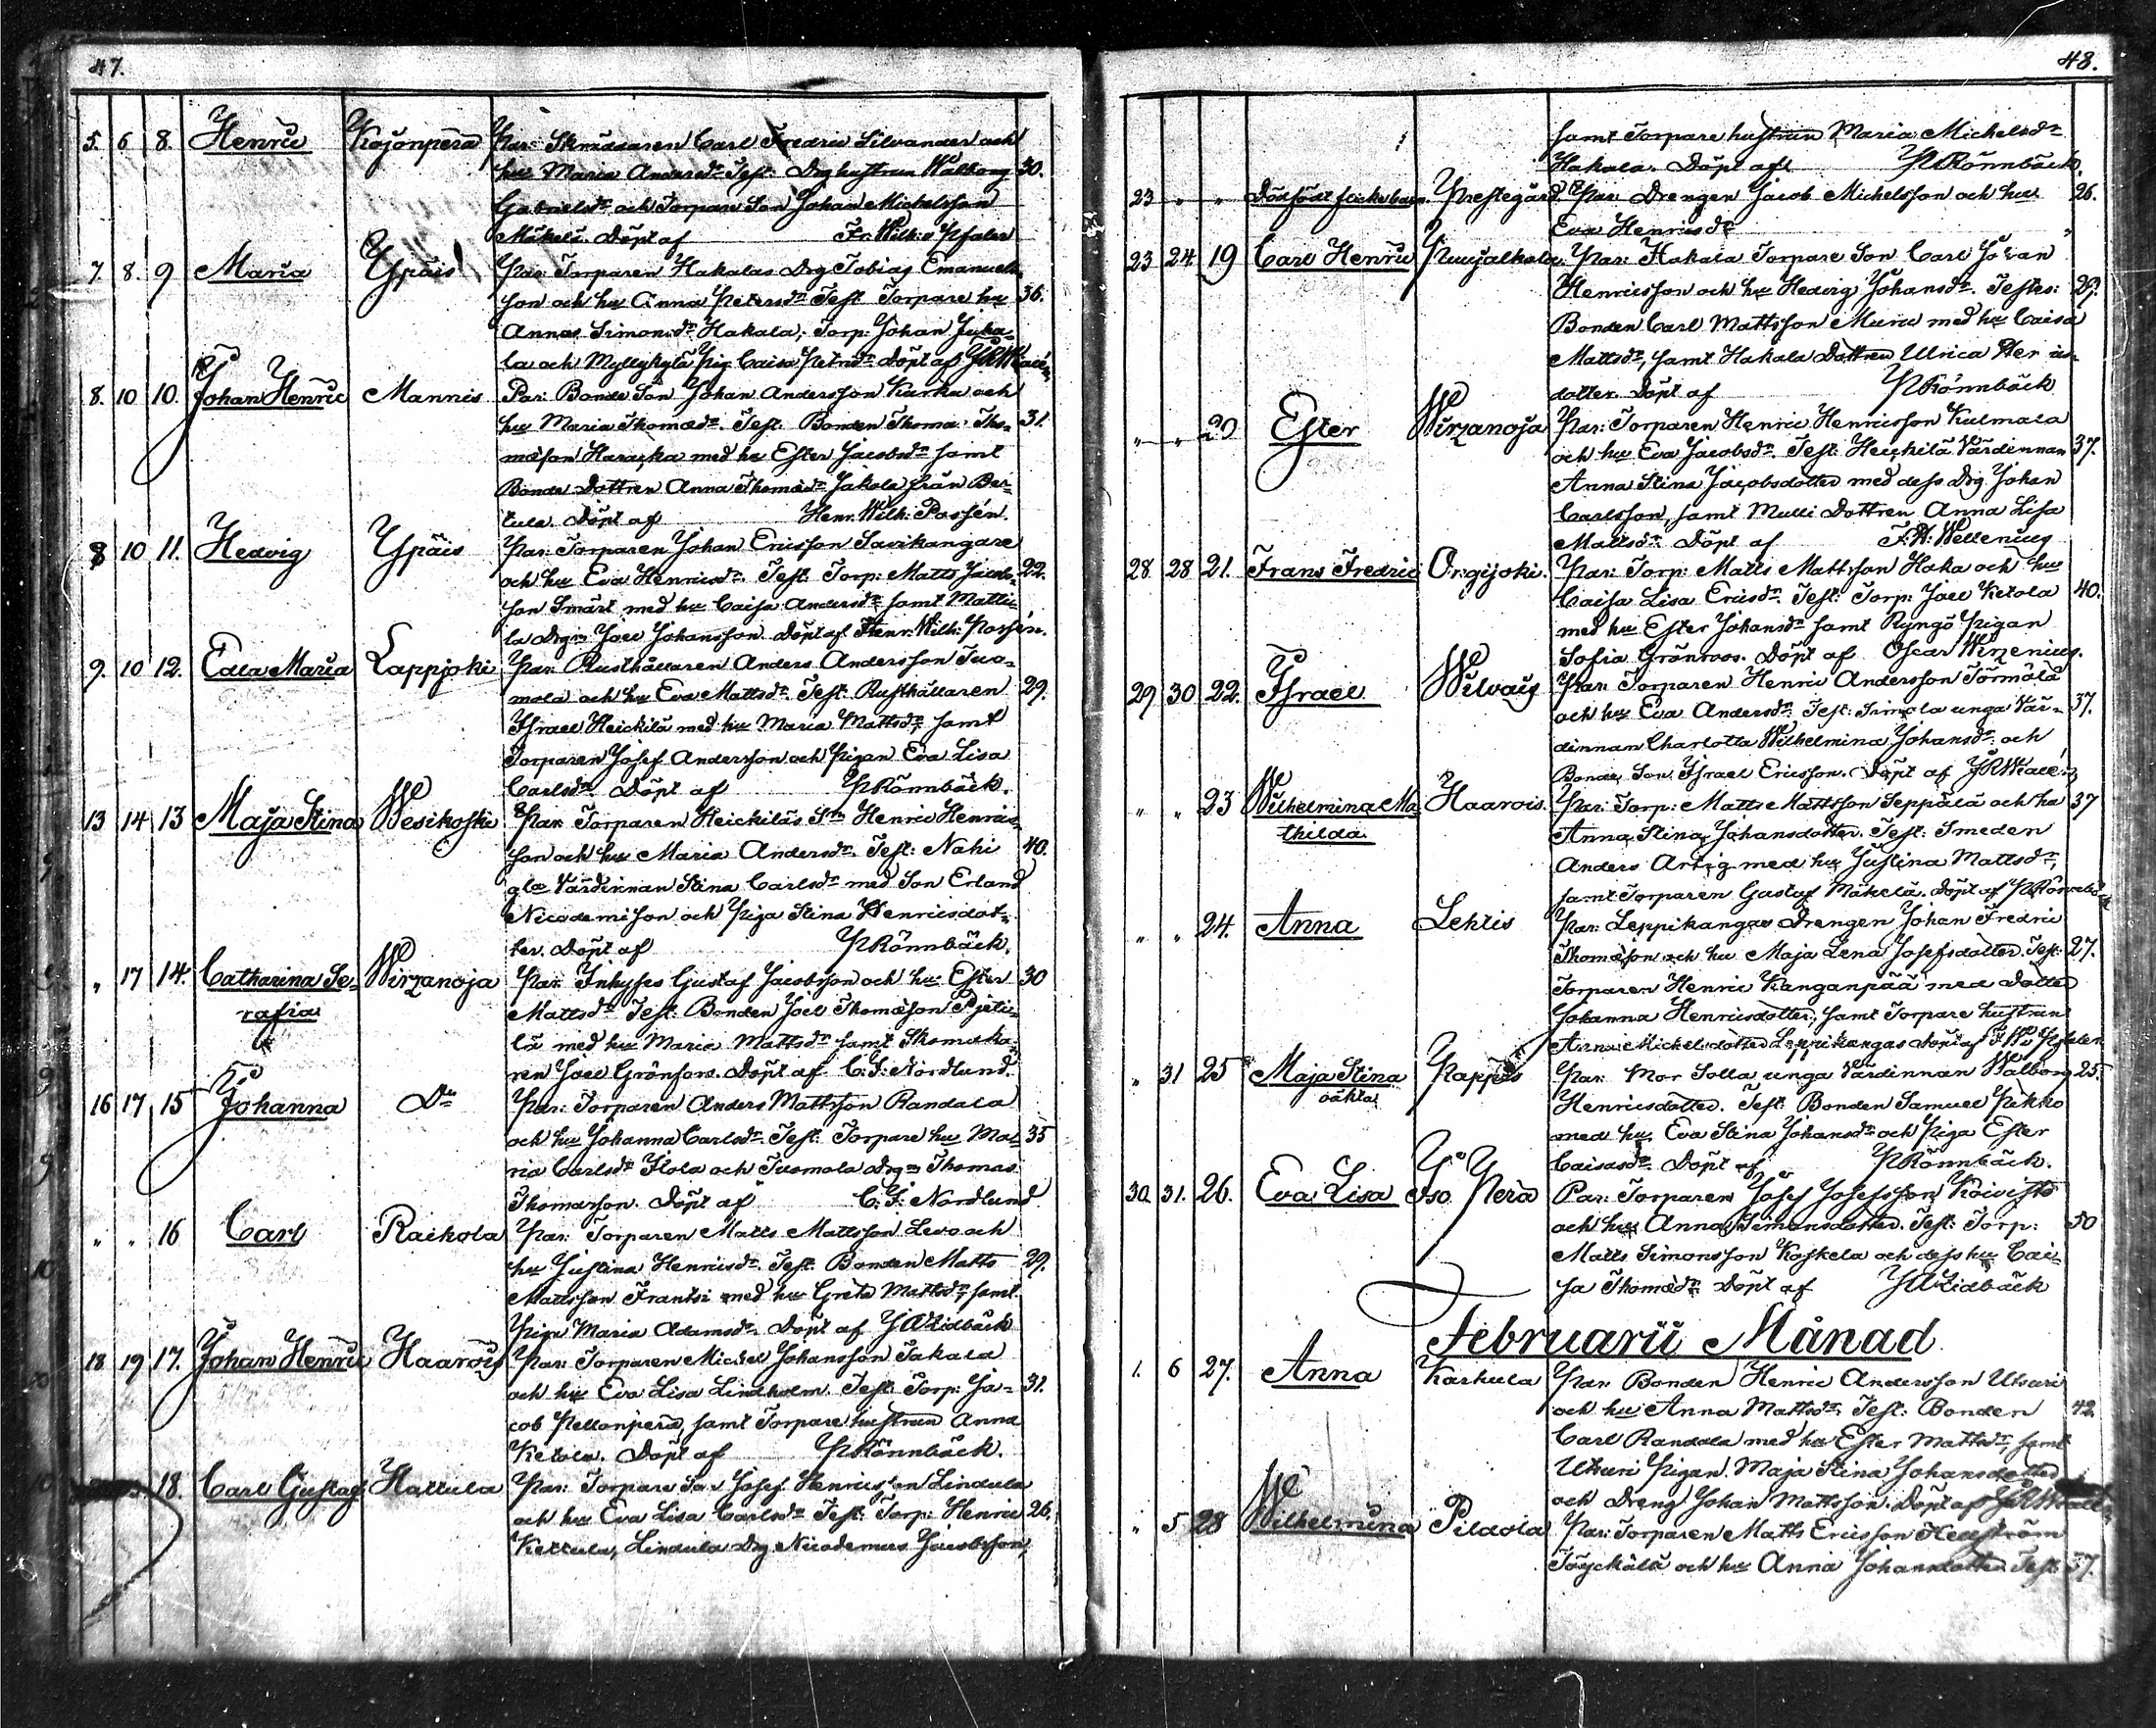 47.
5. 6 8. Henric Kojonperä Par: Skräddaren Carl Fredric Silvander och
hu Maria Andersdr Test: Drg hustrun Walborg 30.
Gabrielsdr och Torpare Son Johan Michelsson
Mäkelä. Döpt af Fr: Wilh: v Pfaler
7 8. 9 Maria Ypäis Par: Torparen Hakalas Drg Tobias Emanuels-
son och hu Anna Petersdr Test Torpare hu 36.
Annas Simonsdr Hakala, Torp: Johan Juka-
la och Myllykylä Pig Caisa Petrsdr Döpt af
8. 10 10. Johan Henric Mannis Par: Bonde Son Johan Andersson Kurka och
hu Maria Thomædr. Test. Bonden Thoma Tho- 31.
mæson Haraska med hu Ester Jacobsdr samt
Bonde Dottren Anna Thomædr Jakola från Ber-
tula. Döpt af Henr: Wilh: Passén.
8 10 11. Hedvig Ypäis Par: Torparen Johan Ericsson Savikangare
och hu Eva Henricsdr. Test. Torp: Matts Jacobs- 22.
son Smärt med hu Caisa Andersdr samt Matti-
la Drgn Joel Johansson. Döpt af Henr: Wilh: Passén.
9. 10 12. Edla Maria Lappjoki Par: Rusthållaren Anders Andersson Tuo-
mola och hu Eva Mattsdr. Test. Rusthållaren 29.
Israel Heickilä med hu Maria Mattsdr, samt
Torparen Josef Andersson och Pigan Eva Lisa
Carlsdr. Döpt af P Rönnbäck.
13 14 13 Maja Stina Wesikoski Par: Torparen Heickiläs Sm Henric Henrics-
son och hu Maria Andersdr. Test: Nahi 40.
gla Värdinnan Stina Carlsdr med Son Erland
Nicodemison och Piga Stina Henricsdot-
ter. Döpt af P Rönnbäck.
„ 17 14. Catharina Se- Wirzanoja Par: Inhyses Gustaf Jacobsson och hu Ester 30
rafia Mattsdr Test. Bonden Joel Thomæson Pjeti-
lä med hu Maria Mattsdr samt Skomaka-
ren Joel Grönfors. Döpt af C. G: Nordlund.
16 17 15 Johanna Do Par: Torparen Anders Mattsson Randala
och hu Johanna Carlsdr. Test: Torpare hu Ma- 35
ria Carlsdr Ilola och Tuomola Drgn Thomas
Thomasson. Döpt af C. G: Nordlund
„ „ 16 Carl Raikola Par: Torparen Matts Mattsson Levo och
hu Justina Henricsdr. Test. Bonden Matts 29.
Mattsson Frantsi med hu Greta Mattsdr, samt
Piga Maria Adamsdr. Döpt af J A Lidbäck
18 19 17. Johan Henric Haarois Par: Torparen Michel Johansson Takala
och hu Eva Lisa Lindholm. Test: Torp: Ja- 31.
cob Pellonperä, samt Torpare hustrun Anna
Ketola. Döpt af P Rönnbäck.
18. Carl Gustaf Hattula Par: Torpare Son Josef Henricsson Lindula
och hu Eva Lisa Carlsdr Test: Torp: Henric 26.
Kettula, Lindula Drg Nicodemus Jacobsson,
48.
samt Torpare hustrun Maria Michelsdr
Hakala. Döpt aft P Rönnbäck.
23 „ „ Dödfödt flickebarn. Prestegård. Par: Drengen Jacob Michelsson och hu 26.
Eva Henricsdr
23 24 19 Carl Henric Puujalkala Par: Hakala Torpare Son Carl Johan
Henricsson och hu Hedvig Johansdr. Testes: 29.
Bonden Carl Mattsson Muru med hu Caisa
Mattsdr, samt Hakala Dottren Ulrica
dotter. Döpt af P Rönnbäck
„ „ 20 Ester Wirzanoja Par: Torparen Henric Henricsson Kulmala
och hu Eva Jacobsdr Test: Heickilä Värdinnan 37.
Anna Stina Jacobsdotter med dess Drg Johan
Carlsson, samt Mulli Dottren Anna Lisa
Mattsdr. Döpt af F: H: Wellenius
28 28 21. Frans Fredric Orgijoki. Par: Torp: Matts Mattsson Haka och hu
Caisa Lisa Ericsdr. Test: Torp: Joel Ketola 40.
med hu Ester Johansdr samt Ryngö Pigan
Sofia Grönroos. Döpt af Oscar Wirzenius.
29 30 22. Israel Wilvais Par: Torparen Henric Andersson Törmälä
och hu Eva Andersdr. Test: Simola unga Vär- 37.
dinnan Charlotta Wilhelmina Johansdr och
Bonde Son Israel Ericsson. Döpt af
„ „ 23 Wilhelmina Ma- Haarois. Par: Torp: Matts Mattsson Seppälä och hu 37
thilda Anna Stina Johansdotter. Test: Smeden
Anders Artig med hu Justina Mattsdr,
samt Torparen Gustaf Mäkelä. Döpt af P Rönnbäck
„ „ 24. Anna Lehtis Par: Leppikangas Drengen Johan Fredric
Thomæson och hu Maja Lena Josefsdotter. Test: 27.
Torparen Henric Kanganpää med Dotter
Johanna Henricsdotter, samt Torpare hustrun
Anna Michelsdotter Leppikangas Döpt af F. W: v Pfaler
„ 31 25 Maja Stina Pappis Par: Mor Solla unga Värdinnan Walborg 25.
oäkta Henricsdotter. Test: Bonden Samuel Pikko
med hu Eva Stina Johansdr och Piga Ester
Caisasdr. Döpt af P Rönnbäck.
30. 31. 26. Eva Lisa Iso Perä Par: Torparen Josef Josefsson Koivisto
och hu Anna Simonsdotter. Test: Torp: 50
Matts Simonsson Koskela och dess hu Cai-
sa Thomædr. Döpt af J A Lidbäck
Februarii Månad
1. 6 27. Anna Karhula Par: Bonden Henric Andersson Utsuri
och hu Anna Mattsdr. Test: Bonden 42.
Carl Randala med hu Ester Mattsdr, samt
Utsuri Pigan Maja Stina Johansdotter
och Dreng Johan Mattsson. Döpt af
„ 5 28 Wilhelmina Pilaola Par: Torparen Matts Ericsson Hellström
och hu Anna Johansdotter Test: 37.